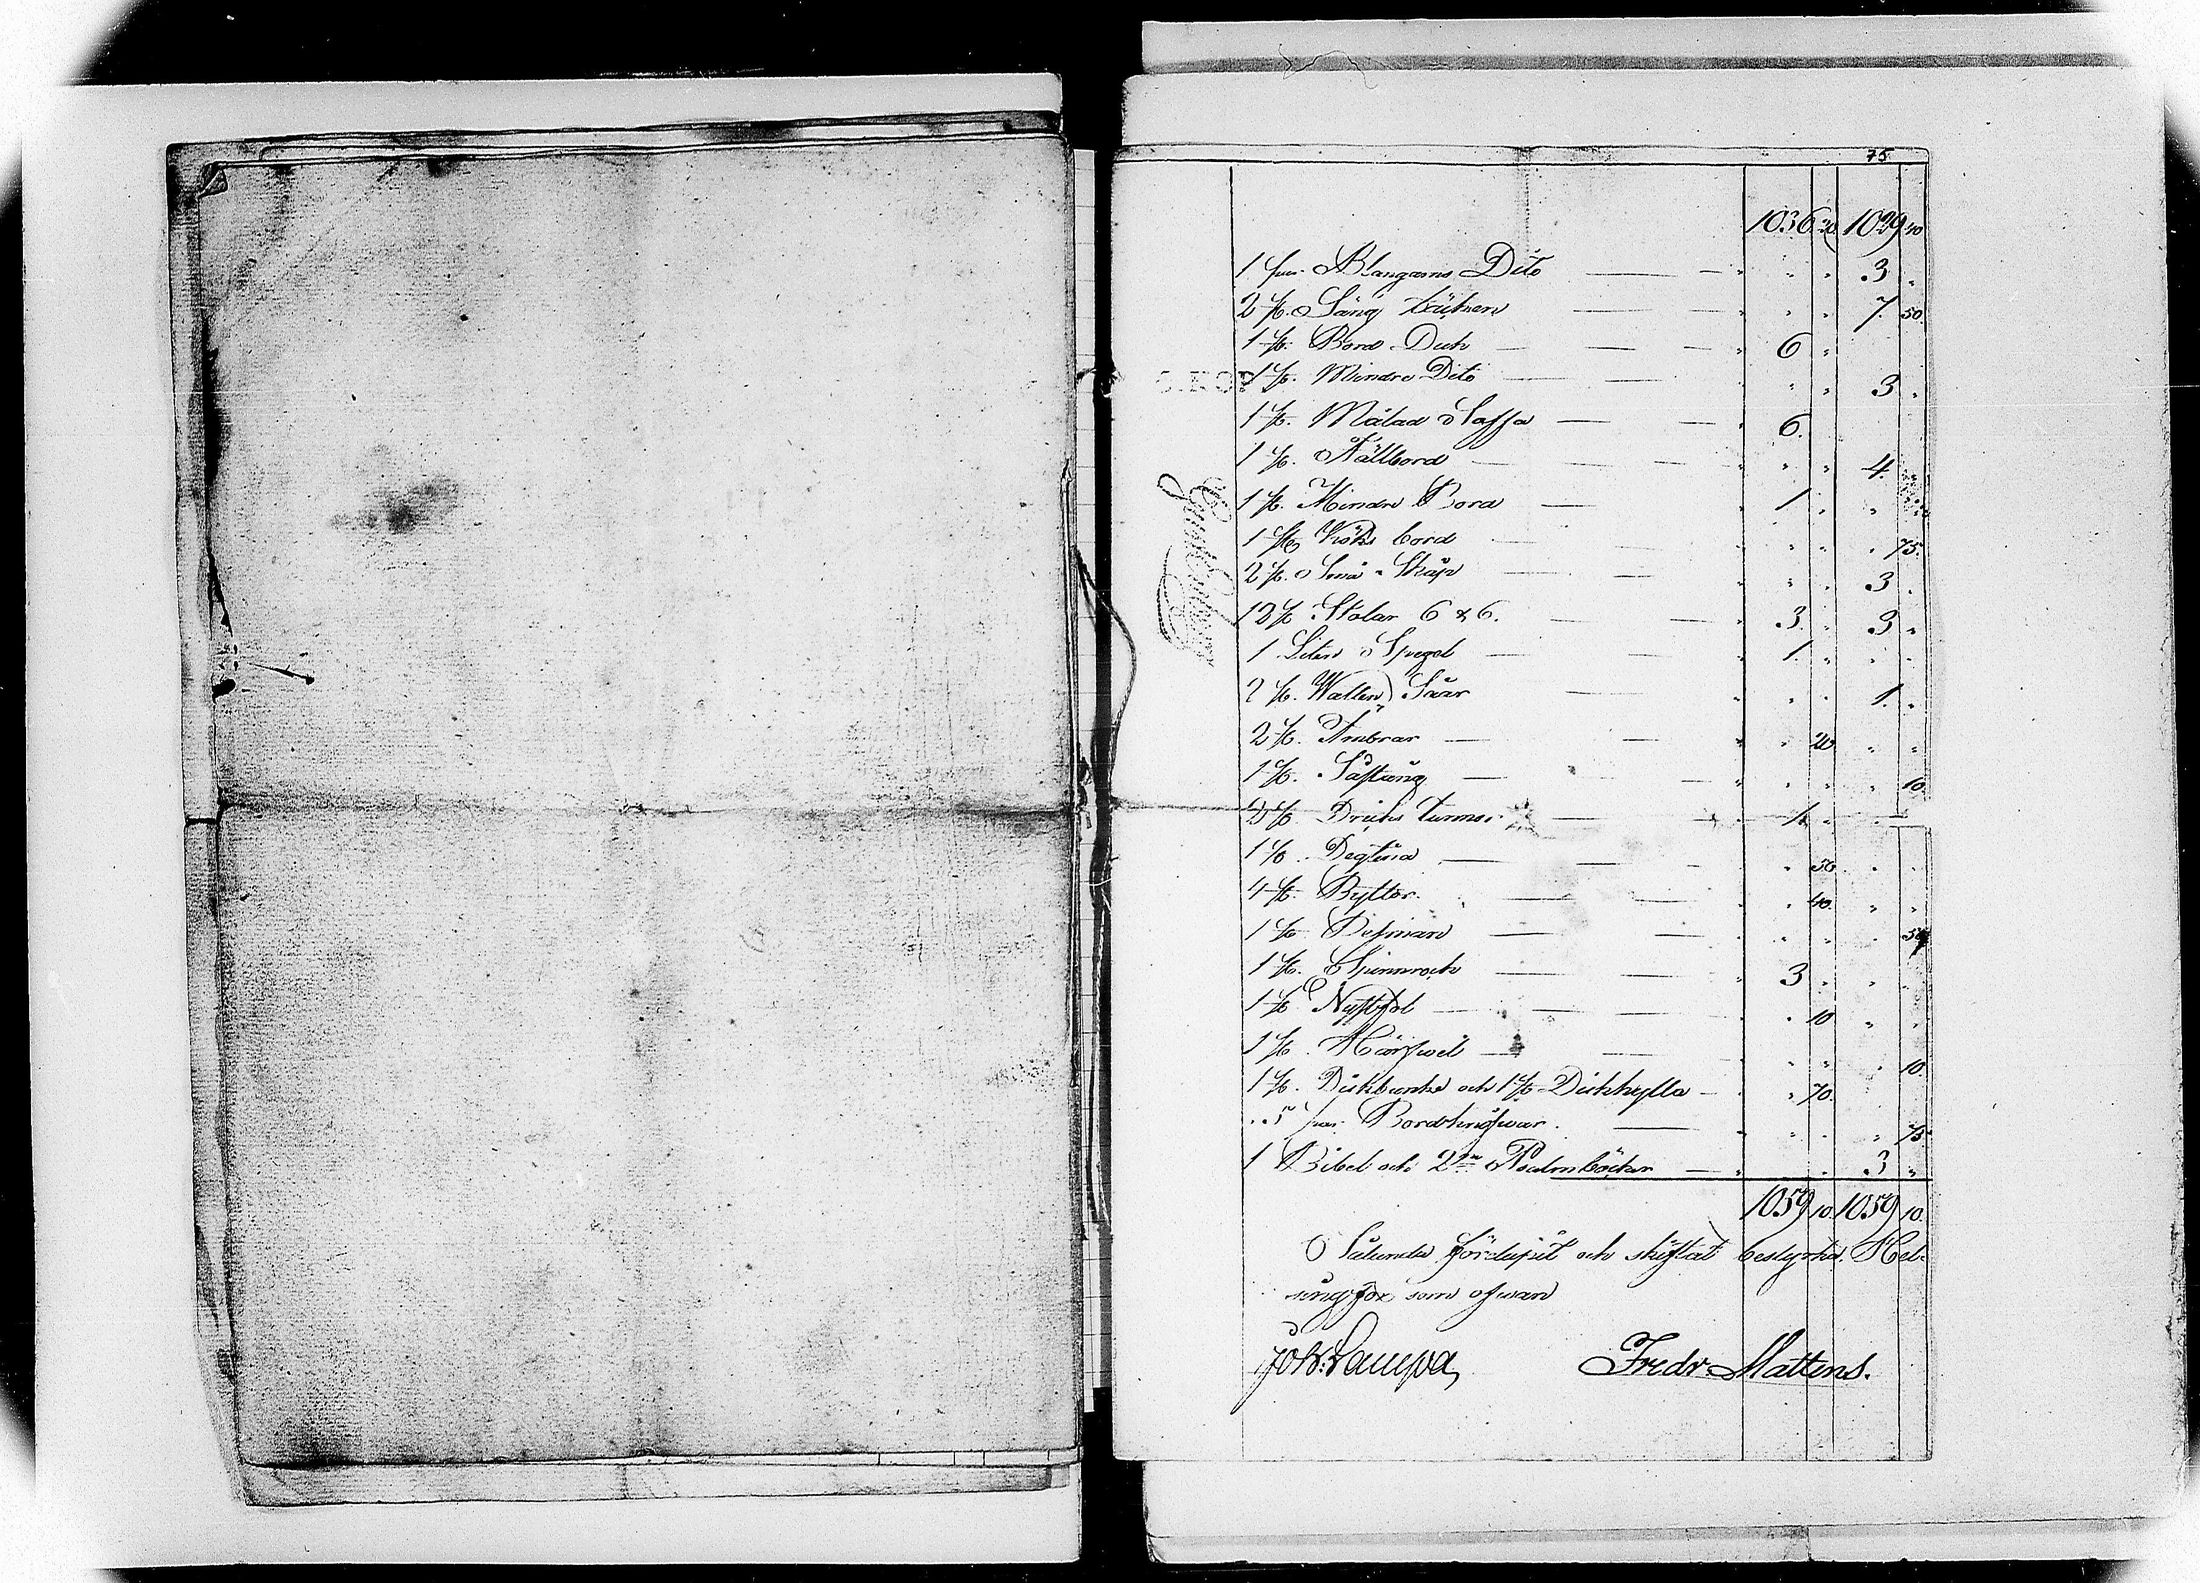 75.
1036 20 1029 40
1 par Blangarns Dito — — " " " 3 "
2 st. Säng täcken — — " " " 7 50
1 st. Bord Duk — — " 6 "
1 st. Mindre Dito — — " " 3 "
1 st. Målad Saffa — — " 6.
1 st. Fällbord — — " " " 4.
1 st. Mindre Bord — — " 1 " "
1 st. Köks bord — — " " " 75.
2 st. Små Skåp — — " " 3 "
12 st Stolar 6 & 6. — — " 3. " 3 "
1 Liten Spegel — — " 1. " " "
2 st. Watten Såar — — " " " 1. "
2 st. Ämbrar — — " " 20 " "
1 st. Såstång — — " " " " 10
2 st Dricks tunnor — — " 1 " "
1 st. Degtina — " 50 " "
4 st. Byttor. — — " " 40 " "
1 st Besman — — " " " 50
1 st. Spinnrock — — " 3 " " "
1 st — — " " 10 " "
1 st. Härfwel — — " " " 10.
1 st. Diskbunke och 1 st Diskhylla — " " 70.
5 par Bordknifwar. — " " " 75
1 Bibel och 2ne Psalmböcker — " " 3 "
1059 10 1059 10.
Sålunda fördelat och skiftat bestyrka. Hel-
singfors som ofwan
Joh: Lampa, Fredr Mattens.